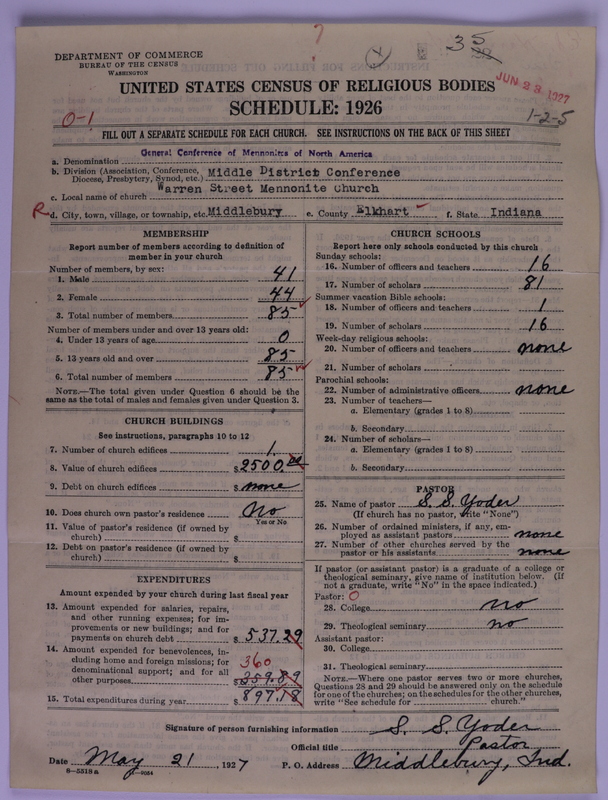 7
4
35
28
DEPARTMENT OF COMMERCE
BUREAU OF THE CENSUS
WASHINGTON
JUN 23 1927
UNITED STATES CENSUS OF RELIGIOUS BODIES
SCHEDULE: 1926
0-1
1-2-5
FILL OUT A SEPARATE SCHEDULE FOR EACH CHURCH. SEE INSTRUCTIONS ON THE BACK OF THIS SHEET
a. Denomination General Conference of Mennonites of North America
b. Division (Association, Conference, Diocese, Presbytery, Synod, etc.) Middle District Conference
c. Local name of church Warren Street Mennonite Church
R d. City, town, village, or township, etc. Middlebury e. County Elkhart f. State Indiana
MEMBERSHIP
Report number of members according to definition of
member in your church
Number of members, by sex:
1. Male 41
2. Female 44
3. Total number of members 85
Number of members under and over 13 years old:
4. Under 13 years of age 0
5. 13 years old and over 85
6. Total number of members 85
NOTE.—The total given under Question 6 should be the
same as the total of males and females given under Question 3.
CHURCH BUILDINGS
See instructions, paragraphs 10 to 12
7. Number of church edifices 1
8. Value of church edifices $2500.00
9. Debt on church edifices $ none
10. Does church own pastor's residence No
Yes or No
11. Value of pastor's residence (if owned by
church) $
12. Debt on pastor's residence (if owned by
church) $
EXPENDITURES
Amount expended by your church during last fiscal year
13. Amount expended for salaries, repairs,
and other running expenses; for im-
provements or new buildings; and for
payments on church debt $ 537.29
14. Amount expended for benevolences, in-
cluding home and foreign missions; for
denominational support; and for all
other purposes 360
$359.89
15. Total expenditures during year $ 897.18
CHURCH SCHOOLS
Report here only schools conducted by this church
Sunday schools:
16. Number of officers and teachers 16
17. Number of scholars 81
Summer vacation Bible schools:
18. Number of officers and teachers 1
19. Number of scholars 16
Week-day religious schools:
20. Number of officers and teachers none
21. Number of scholars
Parochial schools:
22. Number of administrative officers none
23. Number of teachers—
a. Elementary (grades 1 to 8)
b. Secondary
24. Number of scholars—
a. Elementary (grades 1 to 8)
b. Secondary
PASTOR
25. Name of pastor S. S. Yoder
(If church has no pastor, write "None")
26. Number of ordained ministers, if any, em-
ployed as assistant pastors none
27. Number of other churches served by the
pastor or his assistants none
If pastor (or assistant pastor) is a graduate of a college or
theological seminary, give name of institution below. (If
not a graduate, write "No" in the space indicated.)
Pastor: 0
28. College no
29. Theological seminary no
Assistant pastor:
30. College
31. Theological seminary
NOTE.—Where one pastor serves two or more churches,
Questions 28 and 29 should be answered only on the schedule
for one of the churches; on the schedules for the other churches,
write "See schedule for church."
Signature of person furnishing information S. S. Yoder
Official title Pastor
Date May 21, 1927 P. O. Address Middlebury, Ind.
8—5518a